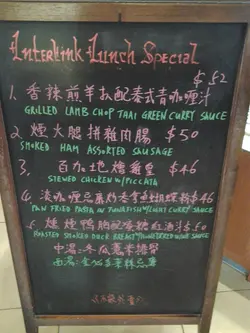 Interlink Lunch Special
$52
1. 香辣煎羊扒配泰式青咖喱汁
GRILLED LAMB CHOP THAI GREEN CURRY SAUCE
2. 煙火腿拼雜肉腸 $50
SMOKED HAM ASSORTED SAUSAGE
3. 百加地燴雞皇 $46
STEWED CHICKEN W/PICCATA
4. 淡咖喱忌廉吞拿魚蝴蝶粉 $46
PAN FRIED PASTA IN TUNAFISH W/LIGHT CURRY SAUCE
煙燻鴨胸配 $50
ROASTED SMOKED DUCK BREAST RED WINE SAUCE
中湯: 冬瓜薏米
西湯: